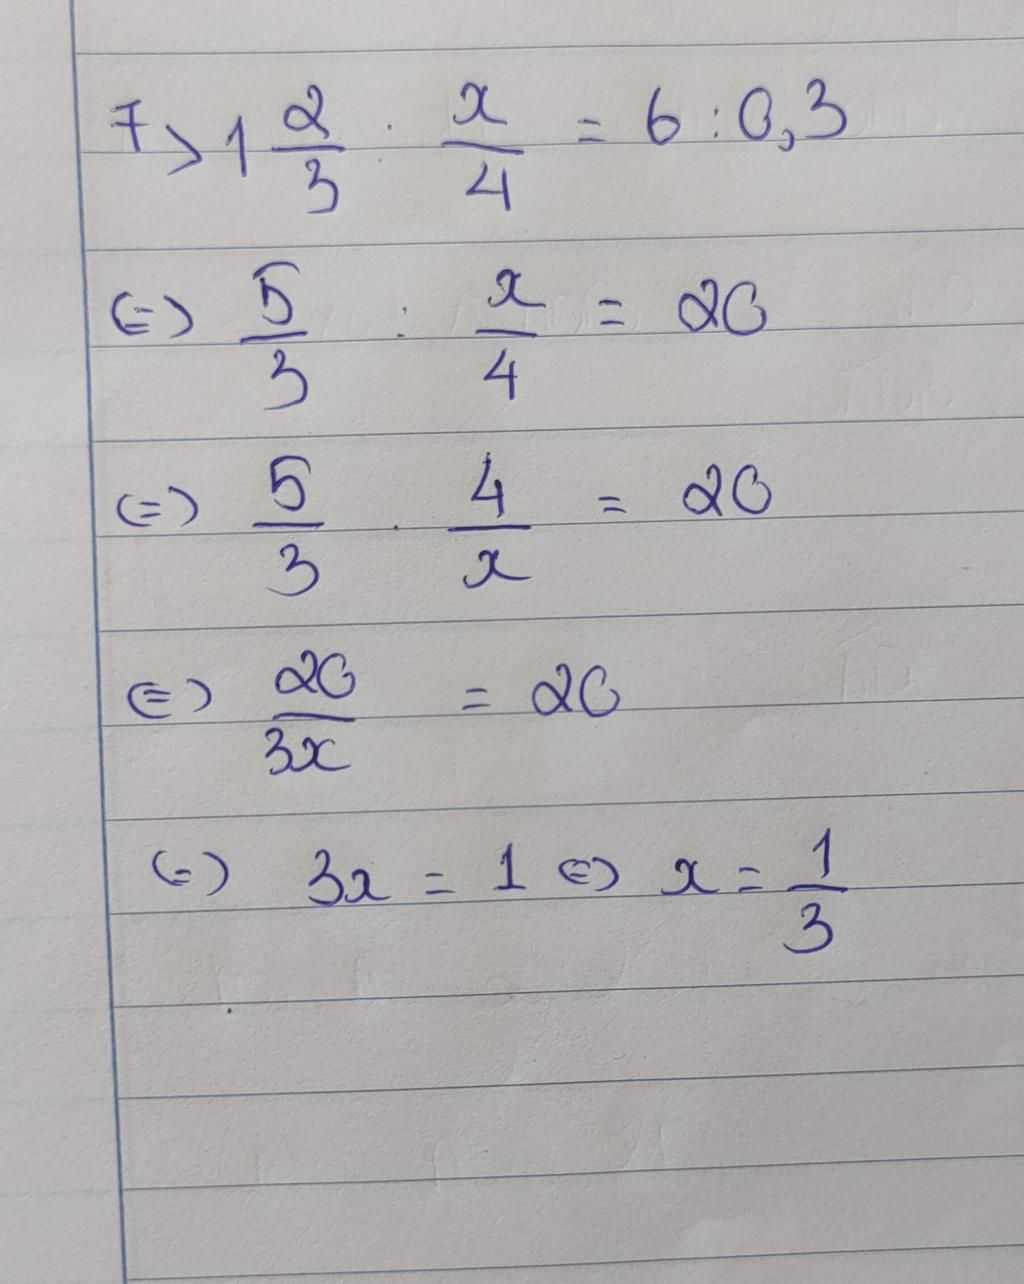 7> 1 2/3 : x/4 = 6 : 0,3
(=) 5/3 : x/4 = 20
(=) 5/3 . 4/x = 20
(=) 20/3x = 20
(=) 3x = 1 (=) x = 1/3